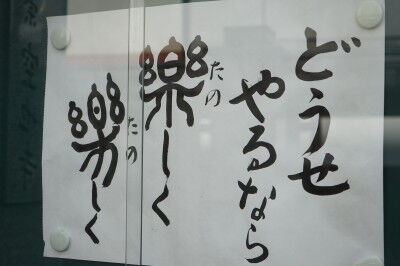 どうせ
やるなら
樂しく
たの
樂しく
たの